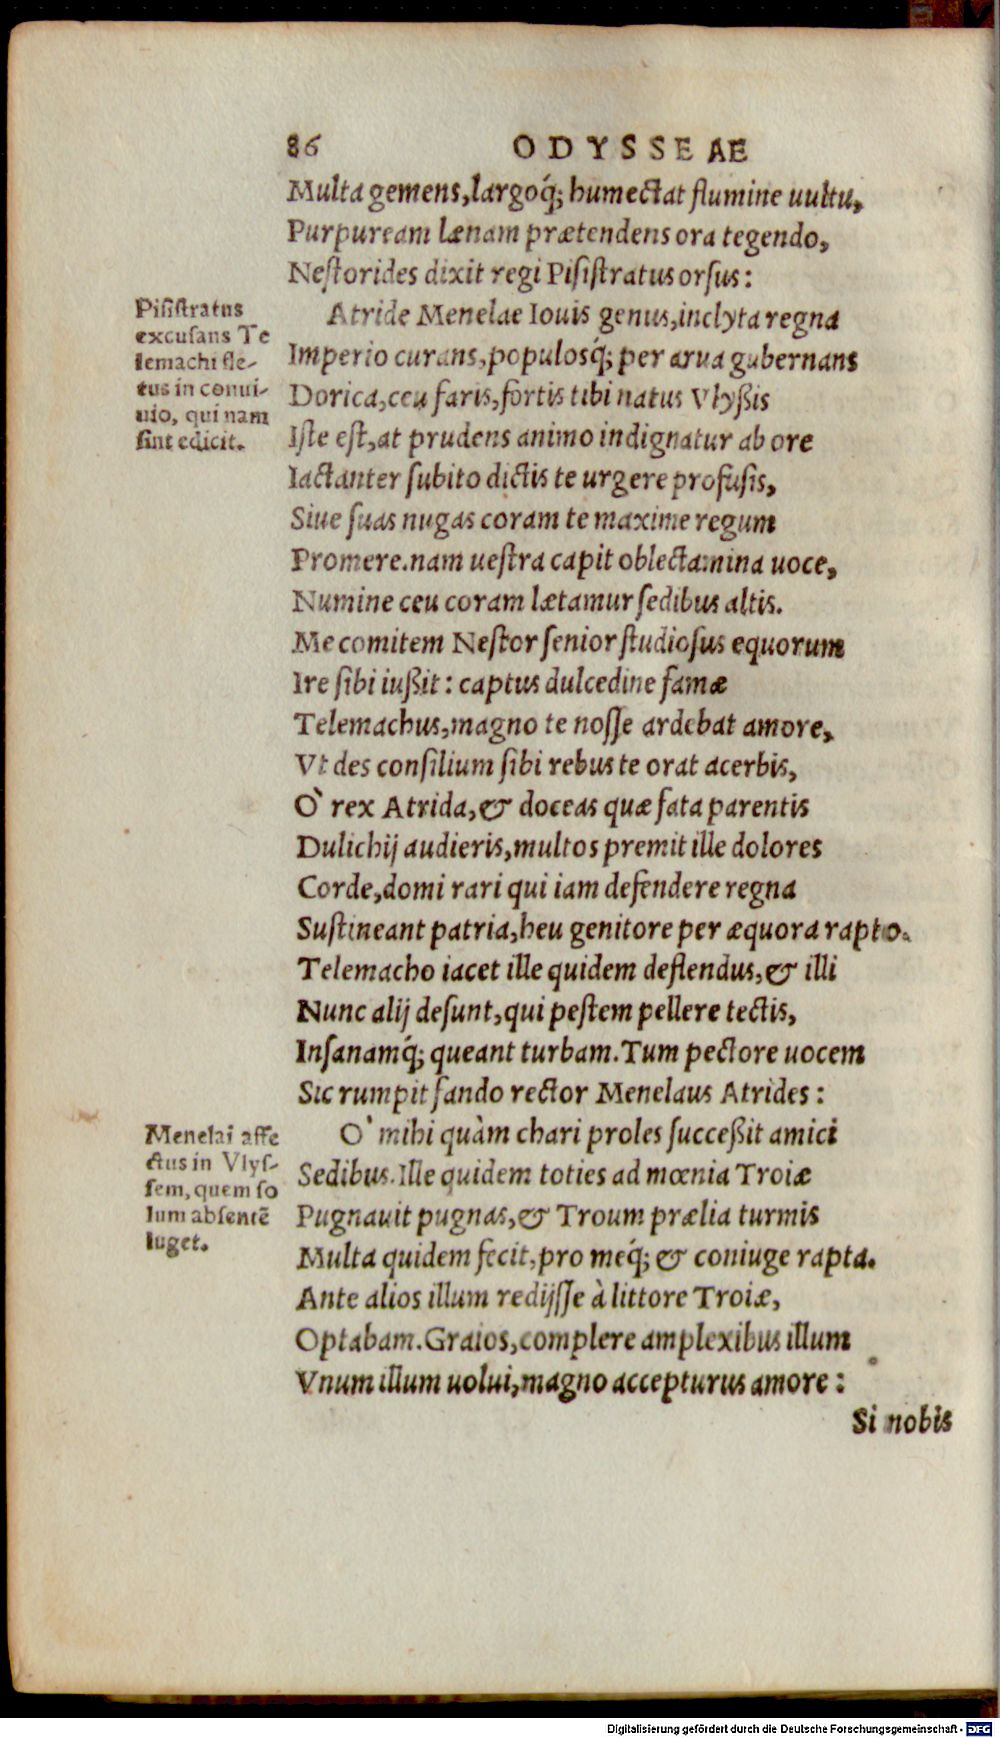 86 ODYSSEAE
Multa gemens, largoq́; humectat flumine uultu,
Purpuream lænam prætendens ora tegendo,
Nestorides dixit regi Pisistratus orsus:
Pisistratus
excusans Te
lemachi fle-
tus in conui-
uio, qui nam
sint edicit.
Atride Menelae Iouis genus, inclyta regna
Imperio curans, populosq́; per arua gubernans
Dorica, ceu faris, fortis tibi natus Vlyßis
Iste est, at prudens animo indignatur ab ore
Iactanter subito dictis te urgere profusis,
Siue suas nugas coram te maxime regum
Promere. nam uestra capit oblectamina uoce,
Numine ceu coram lætamur sedibus altis.
Me comitem Nestor senior studiosus equorum
Ire sibi iußit: captus dulcedine famæ
Telemachus, magno te nosse ardebat amore,
Vt des consilium sibi rebus te orat acerbis,
Ò rex Atrida, & doceas quæ fata parentis
Dulichij audieris, multos premit ille dolores
Corde, domi rari qui iam defendere regna
Sustineant patria, heu genitore per æquora rapto.
Telemacho iacet ille quidem deflendus, & illi
Nunc alij desunt, qui pestem pellere tectis,
Insanamq́; queant turbam. Tum pectore uocem
Sic rumpit fando rector Menelaus Atrides:
Menelai affe
ctus in Vlys-
sem, quem so
lum absentē
luget.
Ò mihi quàm chari proles succeßit amici
Sedibus. Ille quidem toties ad mœnia Troiæ
Pugnauit pugnas, & Troum prælia turmis
Multa quidem fecit, pro meq́; & coniuge rapta.
Ante alios illum redijsse à littore Troiæ,
Optabam. Graios, complere amplexibus illum
Vnum illum uolui, magno accepturus amore:
Si nobis
Digitalisierung gefördert durch die Deutsche Forschungsgemeinschaft - DFG